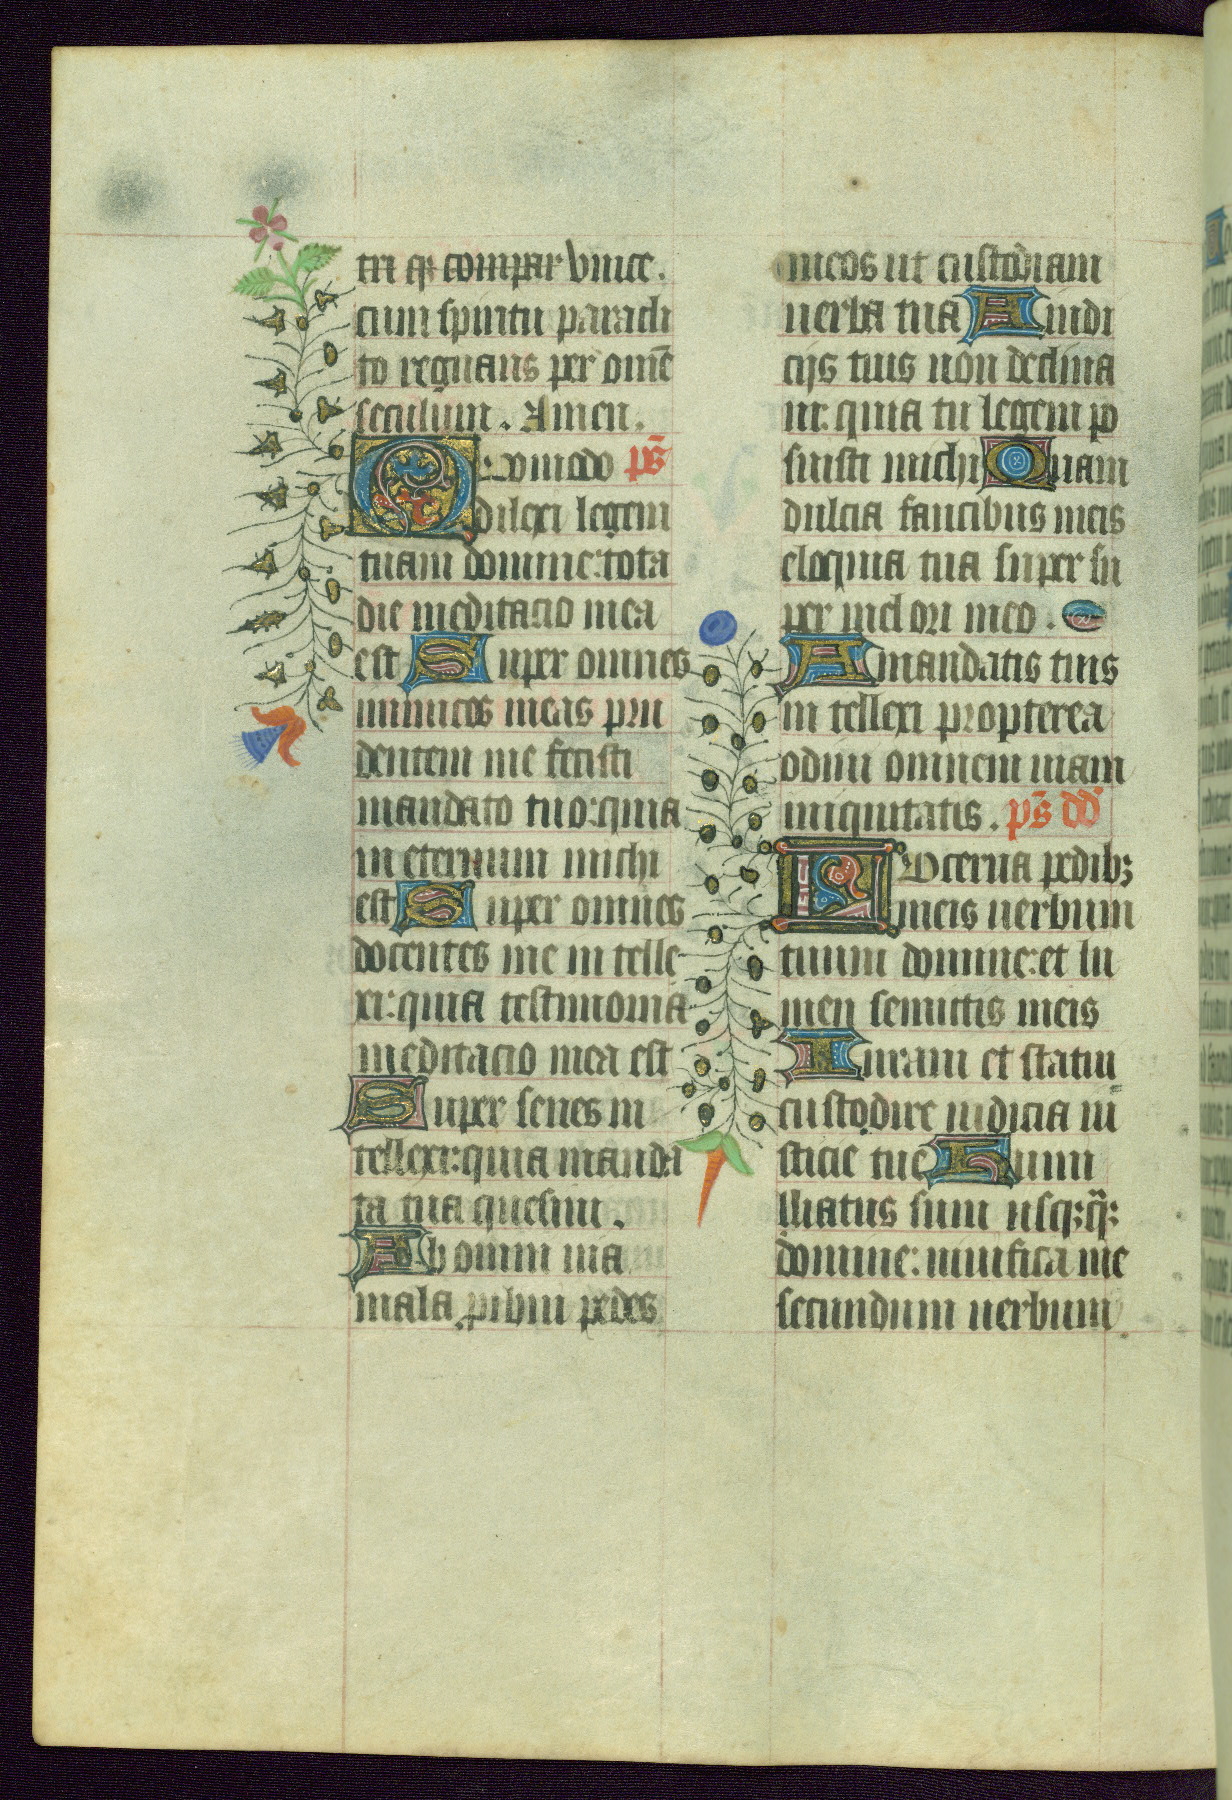 tri q3 compar Vnice.
cum spiritu paracli
to regnans per omne̅
seculum. Amen.
Quomodo ps̅
dilexi legem
tuam domine: tota
die meditacio mea
est Super omnes
inimicos meas pru
dentem me fecisti
mandato tuo: quia
in eternum michi
est Super omnes
docentes me in telle
xi: quia testimonia
meditacio mea est
Super senes in
tellexi: quia manda
ta tua quesiui.
Ab omni uia
mala prhui pedes
meos ut custodiam
uerba tua A iudi
cijs tuis non declina
ui: quia tu legem po
suisti michi Quam
dulcia faucibus meis
eloquia tua super su
per mel ori meo.
A mandatis tuis
in tellexi propterea
odiui omnem uiam
iniquitatis. ps̅ dd̅
Lucerna pedib3
meis uerbum
tuum domine: et lu
men semittis meis
Iuraui et statui
custodire iudicia iu
sticie tue Humi
lliatus sum usq3q̅3
domine: uiuifica me
secundum uerbum